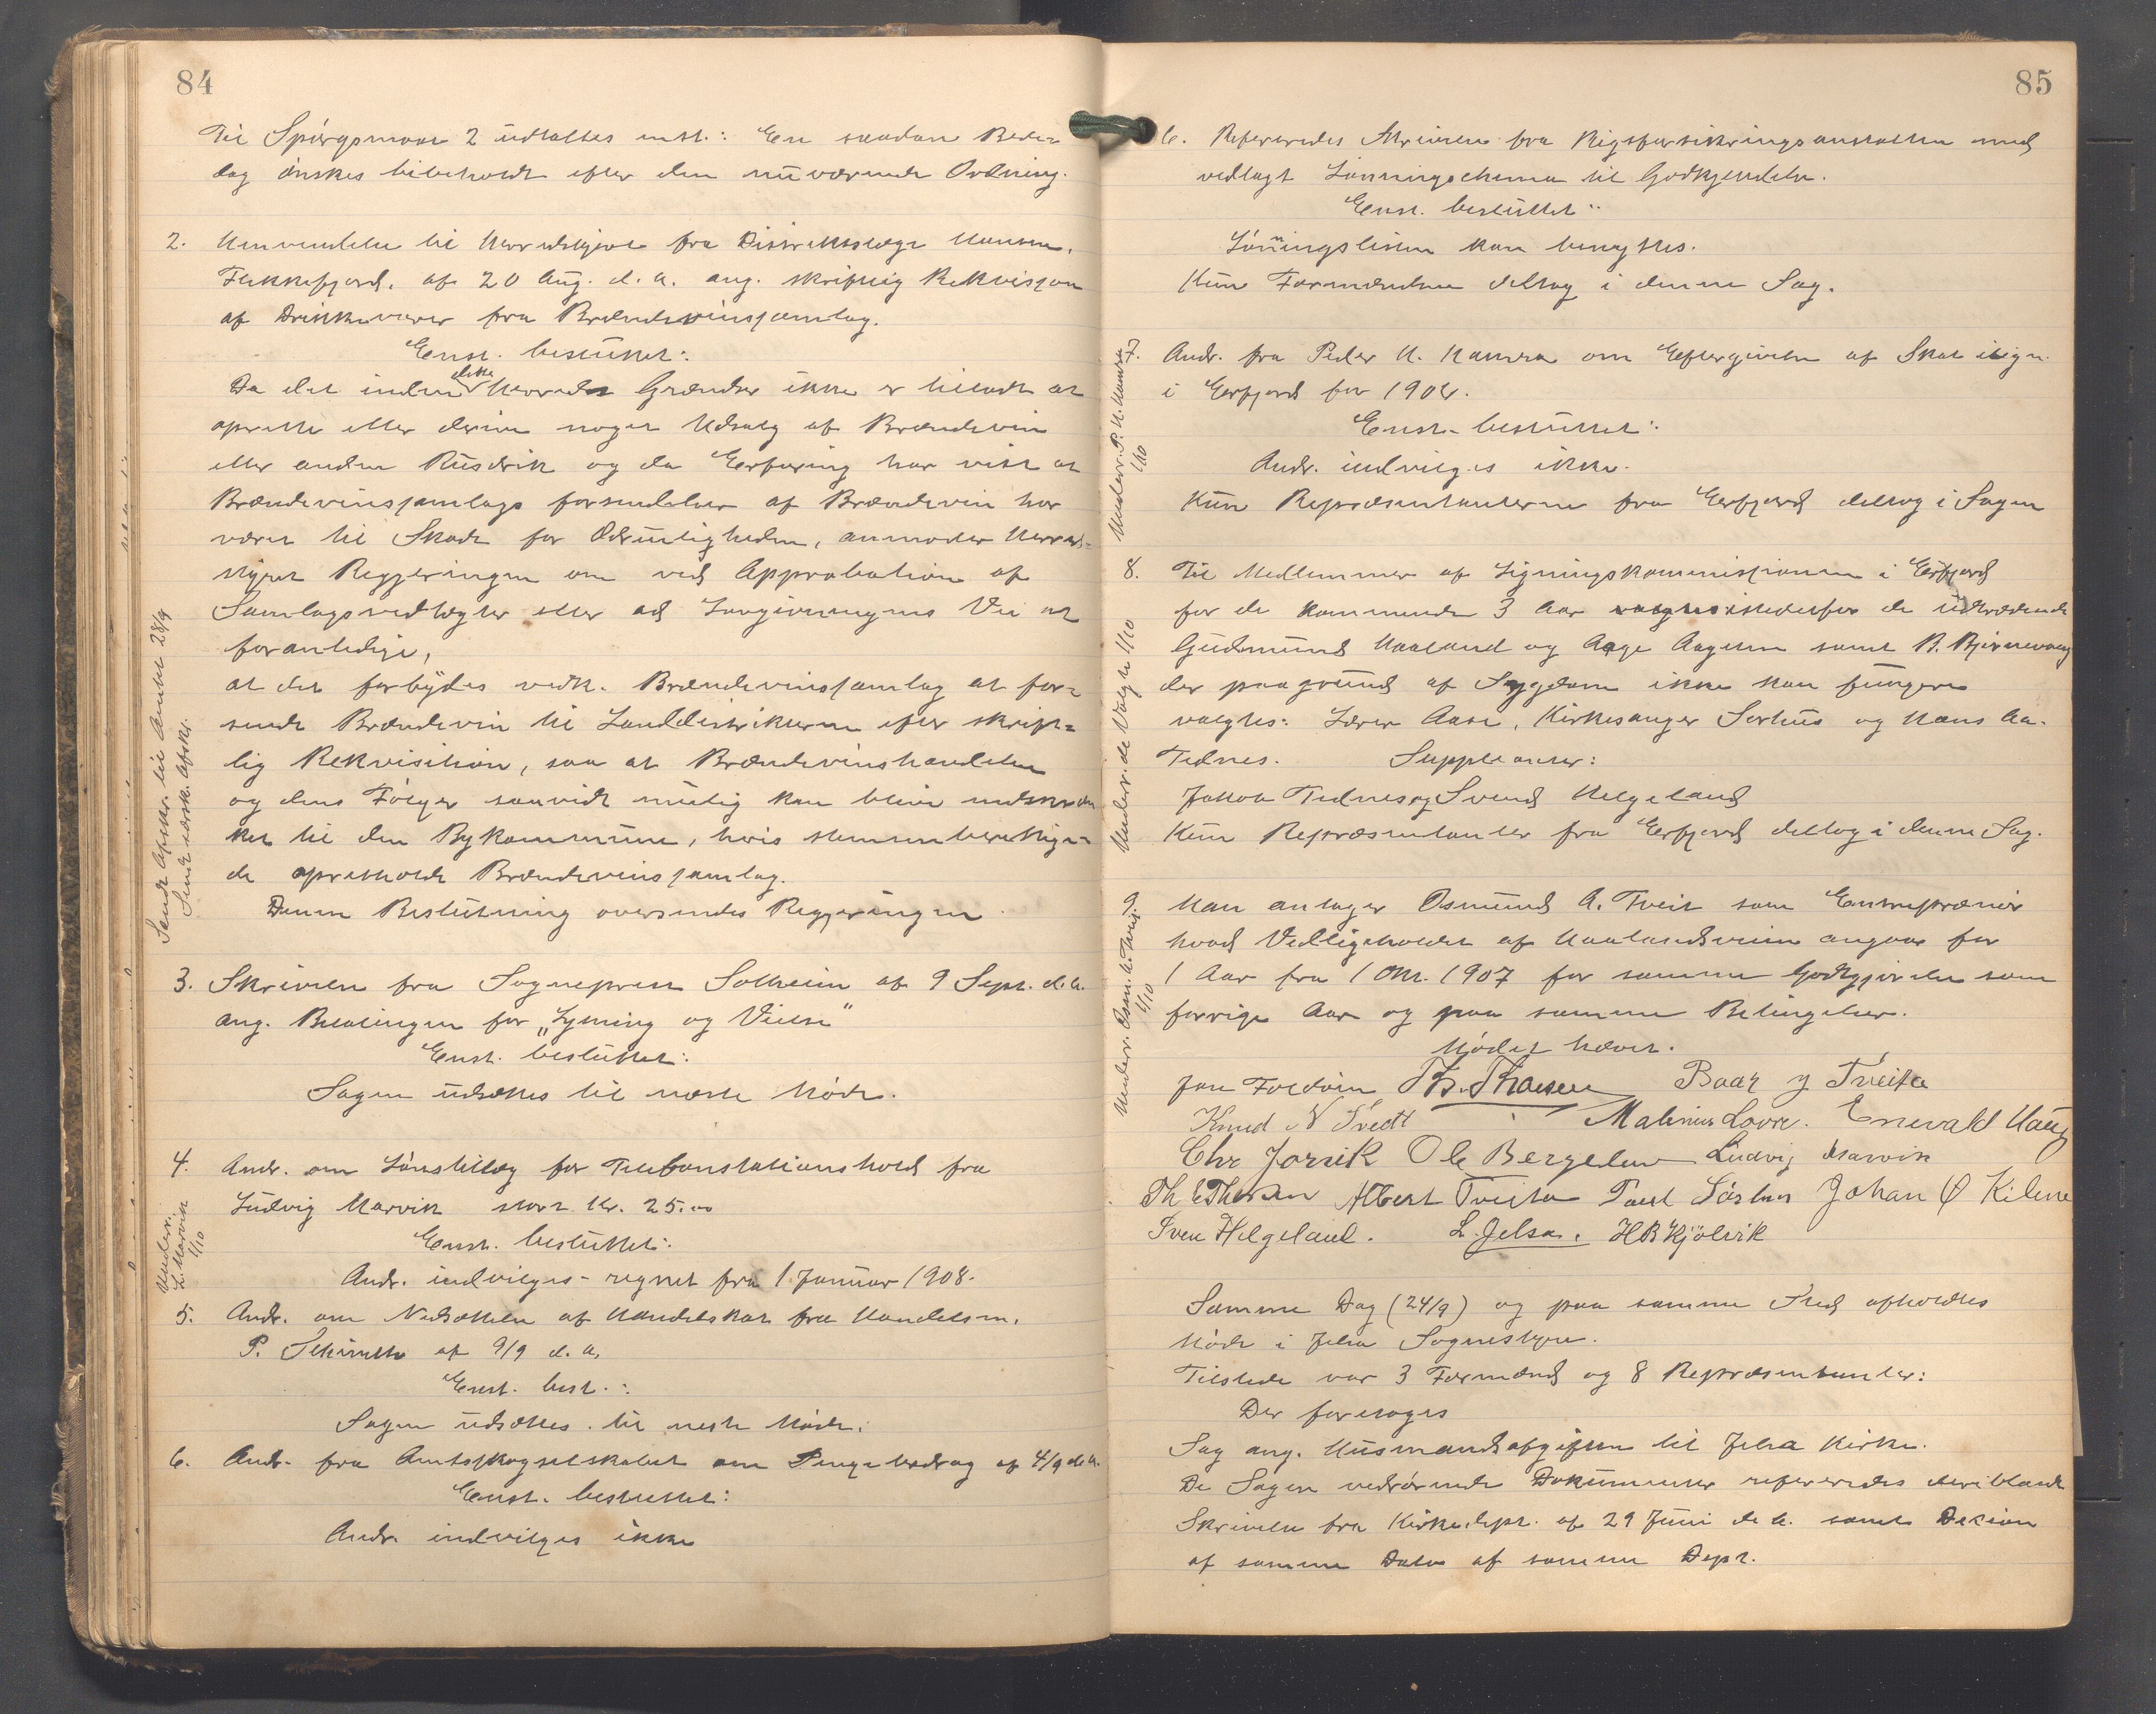 84
Til Spørgsmaal 2 udtaltes enst.: En saadan Bede=
dag ønskes bibeholdt efter den nuværende Ordning.
2. Henvendelse til Herredstyret fra Distriktslæge Hansen,
Flekkefjord, af 20 Aug. d. a. ang. skriftlig Rekvisision
af Drikkevarer fra Brændevinssamlag.
Enst. besluttet:
Da det inden dette Herreds Grændser ikke er tilladt at
oprette eller drive noget Udsalg af Brændevin
eller anden Rusdrik og da Erfaring har vist at
Brændevinssamlags forsendelser af Brændevin har
været til Skade for Ædrueligheden, anmoder Herreds=
styret Regjeringen om ved Approbation af
Samlagsvedtægter eller ad Lovgivningens Vei at
foranledige,
at det forbydes vedk. Brændevinssamlag at for=
sende Brændevin til Landdistrikterne efter skrift=
lig Rekvisition, saa at Brændevinshandelen
og dens Følger saavidt mulig kan blive indskræn
ket til den Bykommune, hvis stemmeberettige=
de opretholdt Brændevinssamlag.
Denne Beslutning oversendes Regjeringen.
Sendt Afskr. til Amtet 28/9
Sendt særsk. Afskr.
3. Skrivelse fra Sogneprest Solheim af 9 Sept. d.a.
ang. Betalingen for „Lysning og Vielse"
Enst. besluttet:
Sagen udsættes til næste Møde.
4. Andr. om Lønstillæg for Telefonstationshold fra
Ludvig Marvik stort Kr. 25.00
Enst. besluttet:
Andr. indvilges - regnet fra 1 Januar 1908.
Underr.
L. Marvik
1/10
5. Andr. om Nedsættelse af Handelskat fra Handelsm.
P. af 9/9 d. a.
Enst. best.:
Sagen udsættes til neste Møde.
6. Andr. fra Amtsskogselskabet om Pengebidrag af 4/9 d.a.
Enst. besluttet:
Andr. indvilges ikke
85
6. Refereredes Skrivelse fra Rigsforsikringsanstalten med
vedlagt Lønningschema til Godkjendelse.
Enst. besluttet:
Lønningslisten kan benyttes.
Kun Formændene deltog i denne Sag.
7. Andr. fra Peder H. Hamra om Eftergivelse af Skat ilign.
i Erfjord for 1906.
Enst. besluttet:
Andr. indvilges ikke.
Kun Repræsentanterne fra Erfjord deltog i Sagen
Underr. P. H. Hamra
1/10
8. Til Medlemmer af Ligningskommissionen i Erfjord
for de kommende 3 Aar valgtes istedetfor de udtrædende
Gudmund Haaland og Aage Aagesen samt B. Bjørnevaag
der paagrund af Sygdom ikke kan fungere
valgtes: Lærer Aase, Kirkesanger Sørhus og Hans Aa.
Tednes. Suppleanter:
Jakob Tednes og Svend Helgeland
Kun Repræsentanter fra Erfjord deltog i denne Sag.
Underr. de Valgte 1/10
9. Man antager Osmund A. Tveit som Entreprenør
hvad Vedligeholdet af Haalandsveien angaar for
1 Aar fra 1 Okt. 1907 for samme Godtgjørelse som
forrige Aar og paa samme Betingelser.
Mødet hævet.
Underr. Osm. A. Tveit
1/10
Jon Foldøin Th. Thorsen Baar J Tveita
Knud N Tvedt Malenius Lovre. Enevald Haug
Chr Jorsik Ole Bergelun Ludvig Marvik
Th E Thorsen Albert Tveita Poul Sørhus Johan Ø Kilene
Sven Helgeland. L. Jelsa. H B Kjölvik
Samme Dag (24/9) og paa samme Sted afholdtes
Møde i Jelsa Sognestyre.
Tilstede var 3 Formænd og 8 Repræsentanter:
Der foretoges
Sag ang. Husmandsafgiften til Jelsa Kirke.
De Sagen vedrørende Dokumenter refereredes deriblandt
Skrivelse fra Kirkedept. af 29 Juni d. a. samt
af samme Dato af samme Dept.